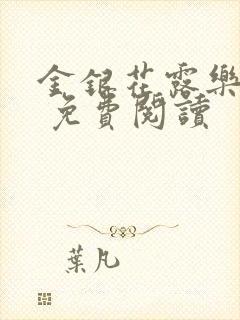 金銀花露樂
免費閱讀
葉凡